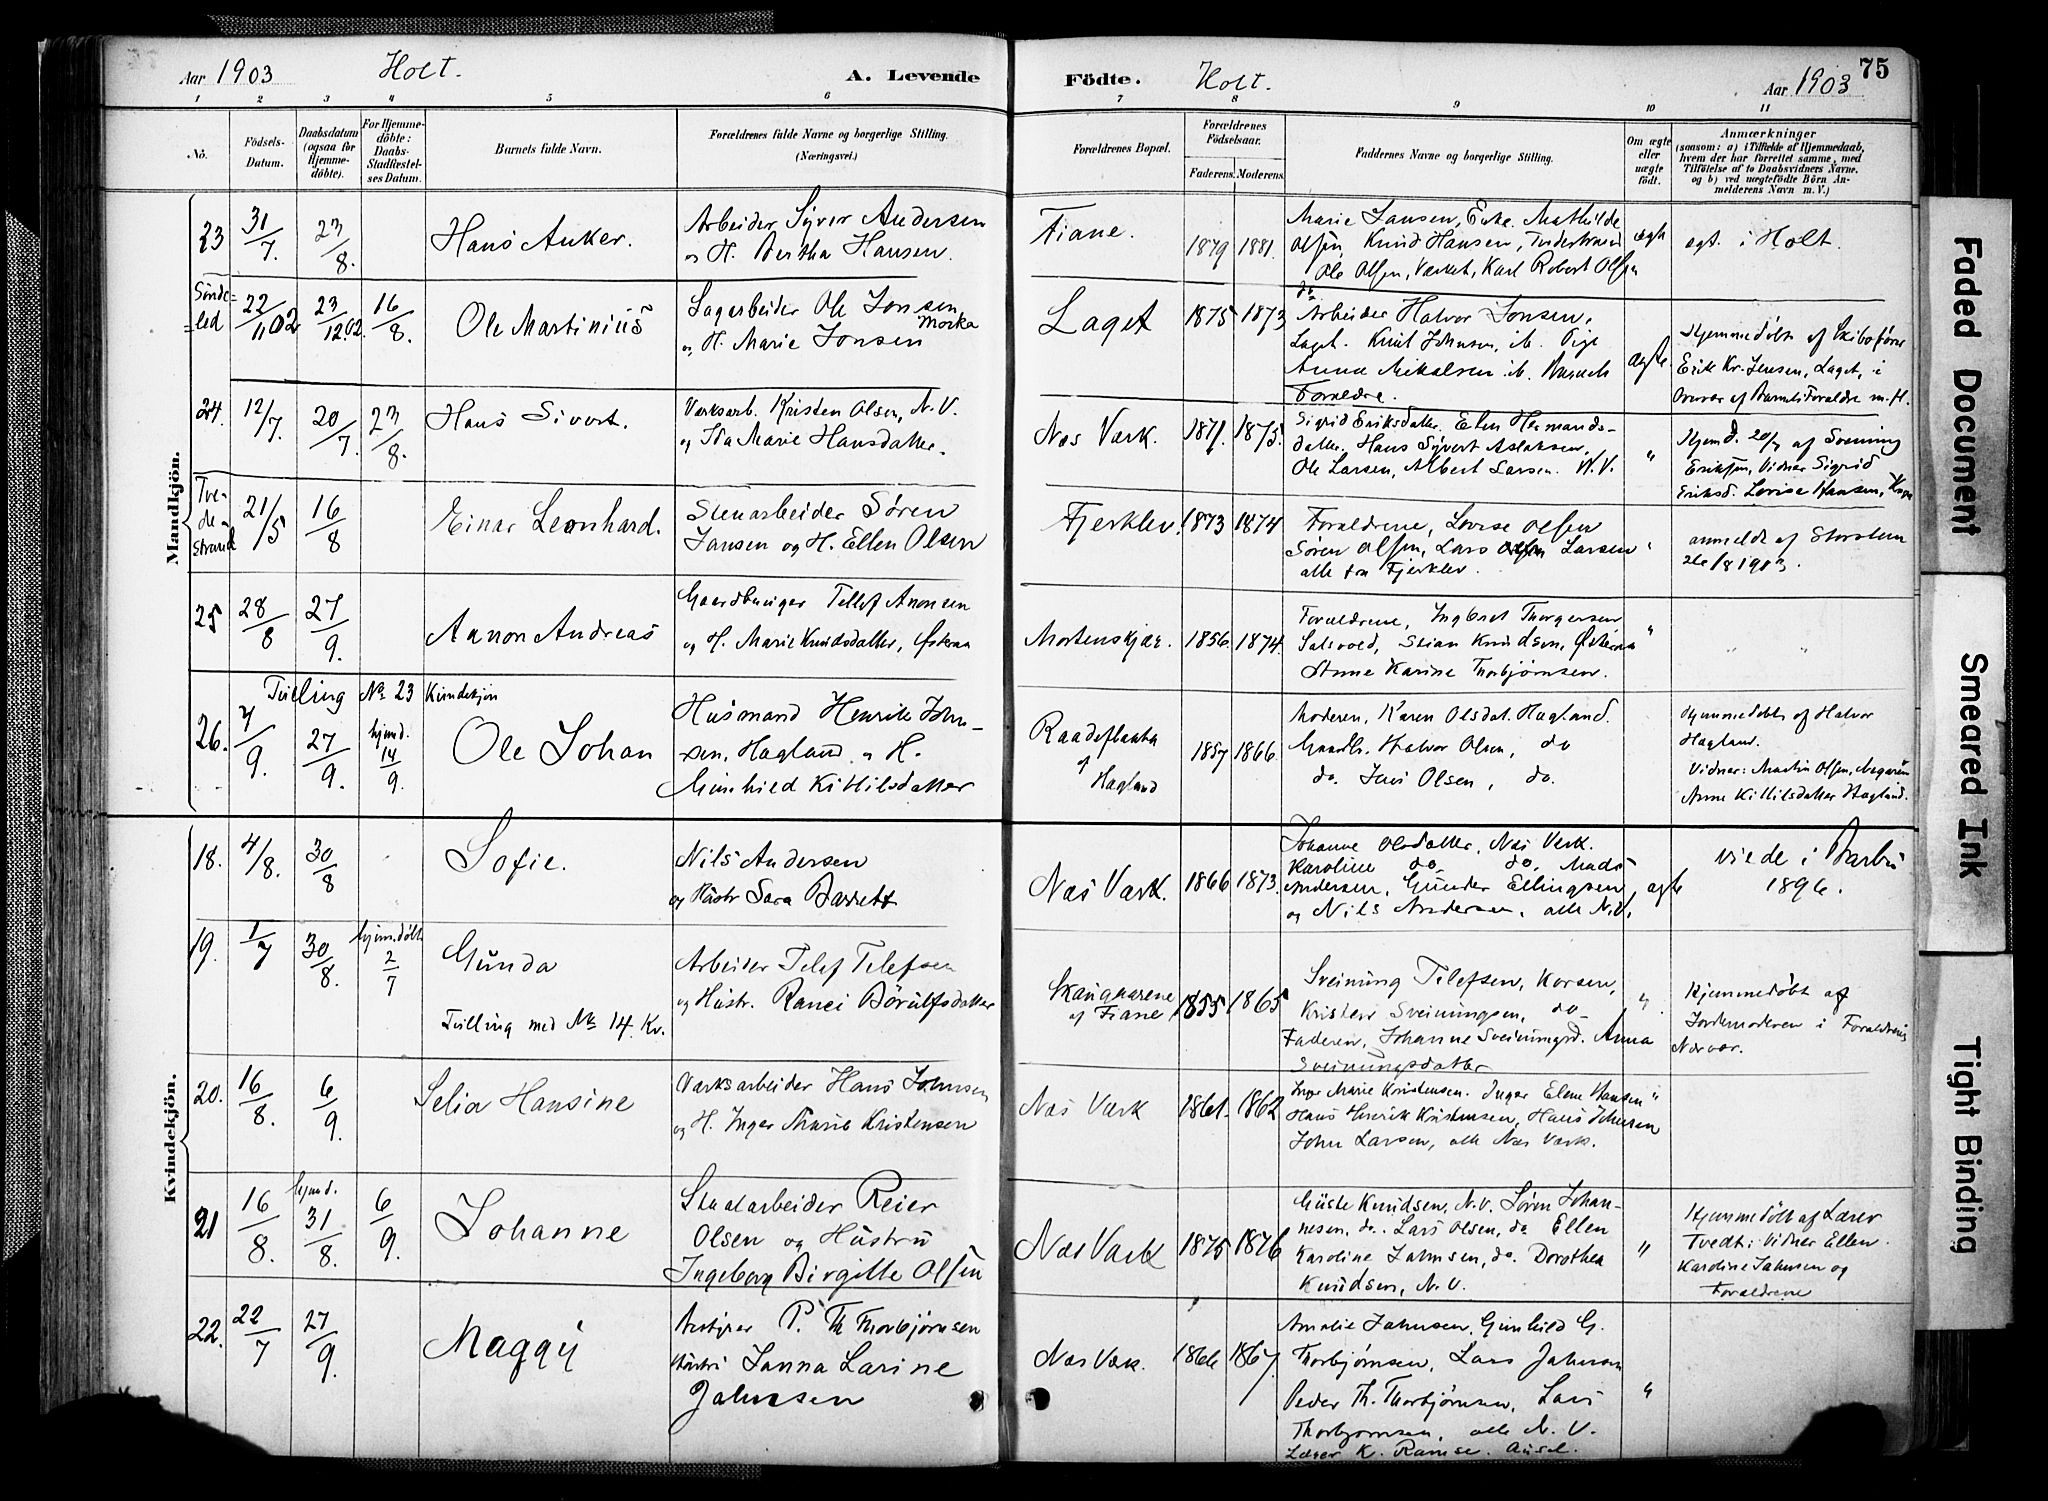 Aar 1903 Holt. A. Levende
1 2 3 4 5 6
No. Födsels-Datum. Daabsdatum (ogsaa for Hjemme-döbte). For Hjemme-döbte: Daabs-Stadfæstel-ses Datum. Barnets fulde Navn. Forældrenes fulde Navne og borgerlige Stilling. (Næringsvei.)
Födte. Holt. Aar 1903 75
7 8 9 10 11
Forældrenes Bopæl. Forældrenes Födselsaar. Faderens. Moderens. Faddernes Navne og borgerlige Stilling. Om ægte eller uægte födt. Anmærkninger
(saasom: a) i Tilfælde af Hjemmedaab,
hvem der har forrettet samme, med
Tilföielse af to Daabsvidners Navne,
og b) ved uægtefödte Börn An-
melderens Navn m. V.)
Mandkjön.
23 31/7 23/8. Hans Anker.
Arbeider Syver Andersen
og H. Bertha Hansen.
Fiane. 1879 1881.
Marie Jansen, Mathilde
Olsen, Knud Hansen,
Ole Olsen, Værket, Karl Robert Olsen
do
ægte
ægt. i Holt.
Sönde=
=led 22/11 02 23/12 02. 16/8. Ole Martinius
Sagarbeider Ole Jonsen
Morka
og H. Marie Jonsen
Laget 1875 1873
Arbeider Halvor Jonsen,
Laget. Knut Johnsen, ib. Pige
Anna Mikalsen ib. Barnets
Forældre.
ægte.
Hjemmedøbt af Skibsfører
Erik Kr. Jensen, Laget, i
Nærvær af Barnets Forældre m. fl.
24. 12/7. 20/7. 23/8. Hans Sivert.
Værksarb. Kristen Olsen, N. V.
og Ida Marie Hansdatter.
Næs Værk. 1871. 1875.
Sigrid Eriksdatter. Elen Hermands-
datter. Hans Syvert Aslaksen,
Ole Larsen, Albert Larsen. N. V.
"
Hjemd. 20/7 af Svenning
Eriksen, Vidner Sigrid
Eriksd. Lovise Hansen,
Tve-
de-
strand 21/5 16/8 Einar Leonhard.
Stenarbeider Søren
Jansen og H. Ellen Olsen
Fjerklev. 1873 1874
Forældrene, Lovise Olsen
Søren Olsen, Lars Larsen
alle fra Fjerklev.
"
anmeldt af
1903.
25 28/8 27/9. Aanon Andreas
Gaardbruger Tellef Anonsen
og H. Marie Knudsdatter, Østeraa
Mortenskjær. 1856. 1874.
Forældrene, Ingbret Thorgersen
Salsvold, Stian Knudsen, Østeraa
Anne Karine Thorbjørnsen.
" " "
Tvilling No 23 Kvindekjøn
26. 7/9. 27/9. hjemd. 14/9. Ole Johan
Husmand Henrik John-
sen, Hagland, og H.
Gunhild Kittilsdatter
Raadeflaata
af
Hagland
1857 1866.
Moderen, Karen Olsdat. Hagland.
Gaardb. Halvor Olsen, do
do. Jens Olsen, do.
Hjemmedøbt af Halvor
Hagland.
Vidner: Martin Olsen,
Anne Kittilsdatter Hagland.
Kvindekjön.
18. 4/8. 30/8 Sofie.
Nils Andersen
og Hustr Sara Barrett
Næs Værk. 1866 1873.
Johanne Olsdatter, Næs Værk.
Karoline do do, Mads
Andersen, Gunder Ellingsen,
og Nils Andersen, alle N.V.
ægte
viede i Barbu
1896.
19. 1/7 30/8. hjemdøbt 2/7 Gunda
Tvilling med No 14. Kv.
Arbeider Telef Telefsen
og Hustr. Ranei Börulfsdatter
af Fiane
1855 1865
Sveinung Telefsen,
Kristen Sveinungsen, do
Faderen, Johanne Sveinungsd. Anna
Sveinungsdatter
"
Hjemmedøbt af
Jordemoderen i Forældrenes
Nærvær.
20. 16/8. 6/9. Selia Hansine
Værksarbeider Hans Johnsen
og H. Inger Marie Kristensen
Næs Værk 1861. 1862
Inger Marie Kristensen. Inger Elene Hansen
Hans Henrik Kristensen, Hans Johnsen
John Larsen, alle Næs Værk.
"
21 16/8. hjemd. 31/8. 6/9. Johanne
Staalarbeider Reier
Olsen og Hustru
Ingeborg Birgitte Olsen
Næs Værk 1875 1876
Guste Knudsen, N.V. Søren Johan-
nesen, do. Lars Olsen, do Ellen
Karoline Jahnsen, do. Dorothea
Knudsen, N. V.
"
Hjemmedøbt af Lærer
Tvedt: Vidner Ellen
Karoline Jahnsen og
Forældrene
22. 22/7 27/9. Maggy
Bestyrer P. Th Thorbjørnsen
Hustru Janna Larine
Jahnsen
Næs Værk. 1866 1867.
Amalie Jahnsen, Gunhild G.
Thorbjørnsen, Lars Jahnsen
Peder Th. Thorbjørnsen, Lars
Thorbjørnsen, alle N. V.
Lærer K. Ramse.
"
Faded Document
Smeared Ink
Tight Binding